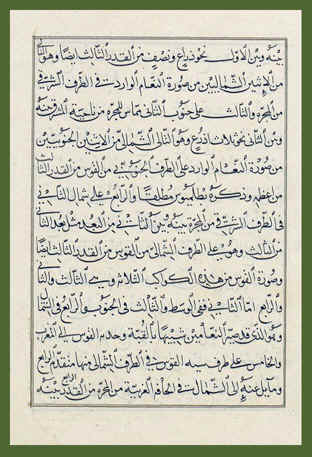 بينه وبين الاول نحو ذراع ونصف من القدر الثالث ايضا وهو الثاني
من الاثنين الشماليين من صورة النعام الوارد في الطرف الشرقي
من المجرة والثالث على جنوب الثاني مماس للمجرة من ناحية المشرق منه
وبين الثاني نحو ثلاث اذرع وهو التالي الشمالي من الاثنين الجنوبيين
من صورة النعام الوارد على الطرف الجنوبي من القوس من القدر الثالث
من اعظمه وذكره بطلميوس مطلقا والرابع على شمال الثاني
في الطرف الشرقي من المجرة بينه وبين الثاني من البعد مثل بعد الثاني
من الثالث وهو على الطرف الشمالي من القوس من القدر الثالث ايضا
وصورة القوس من هذه الكواكب الثلاثة وهي الثالث والثاني
والرابع اما الثاني ففي الوسط والثالث في الجنوب والرابع في الشمال
وهو الذي قد صير النعامين شبيها بالقبة وحدبة القوس الى المغرب
والخامس على طرف سية القوس في الطرف الشمالي منها متقدم للرابع
ومايل عنه الى الشمال في الحافة الغربية من المجرة من القدر الرابع بينه